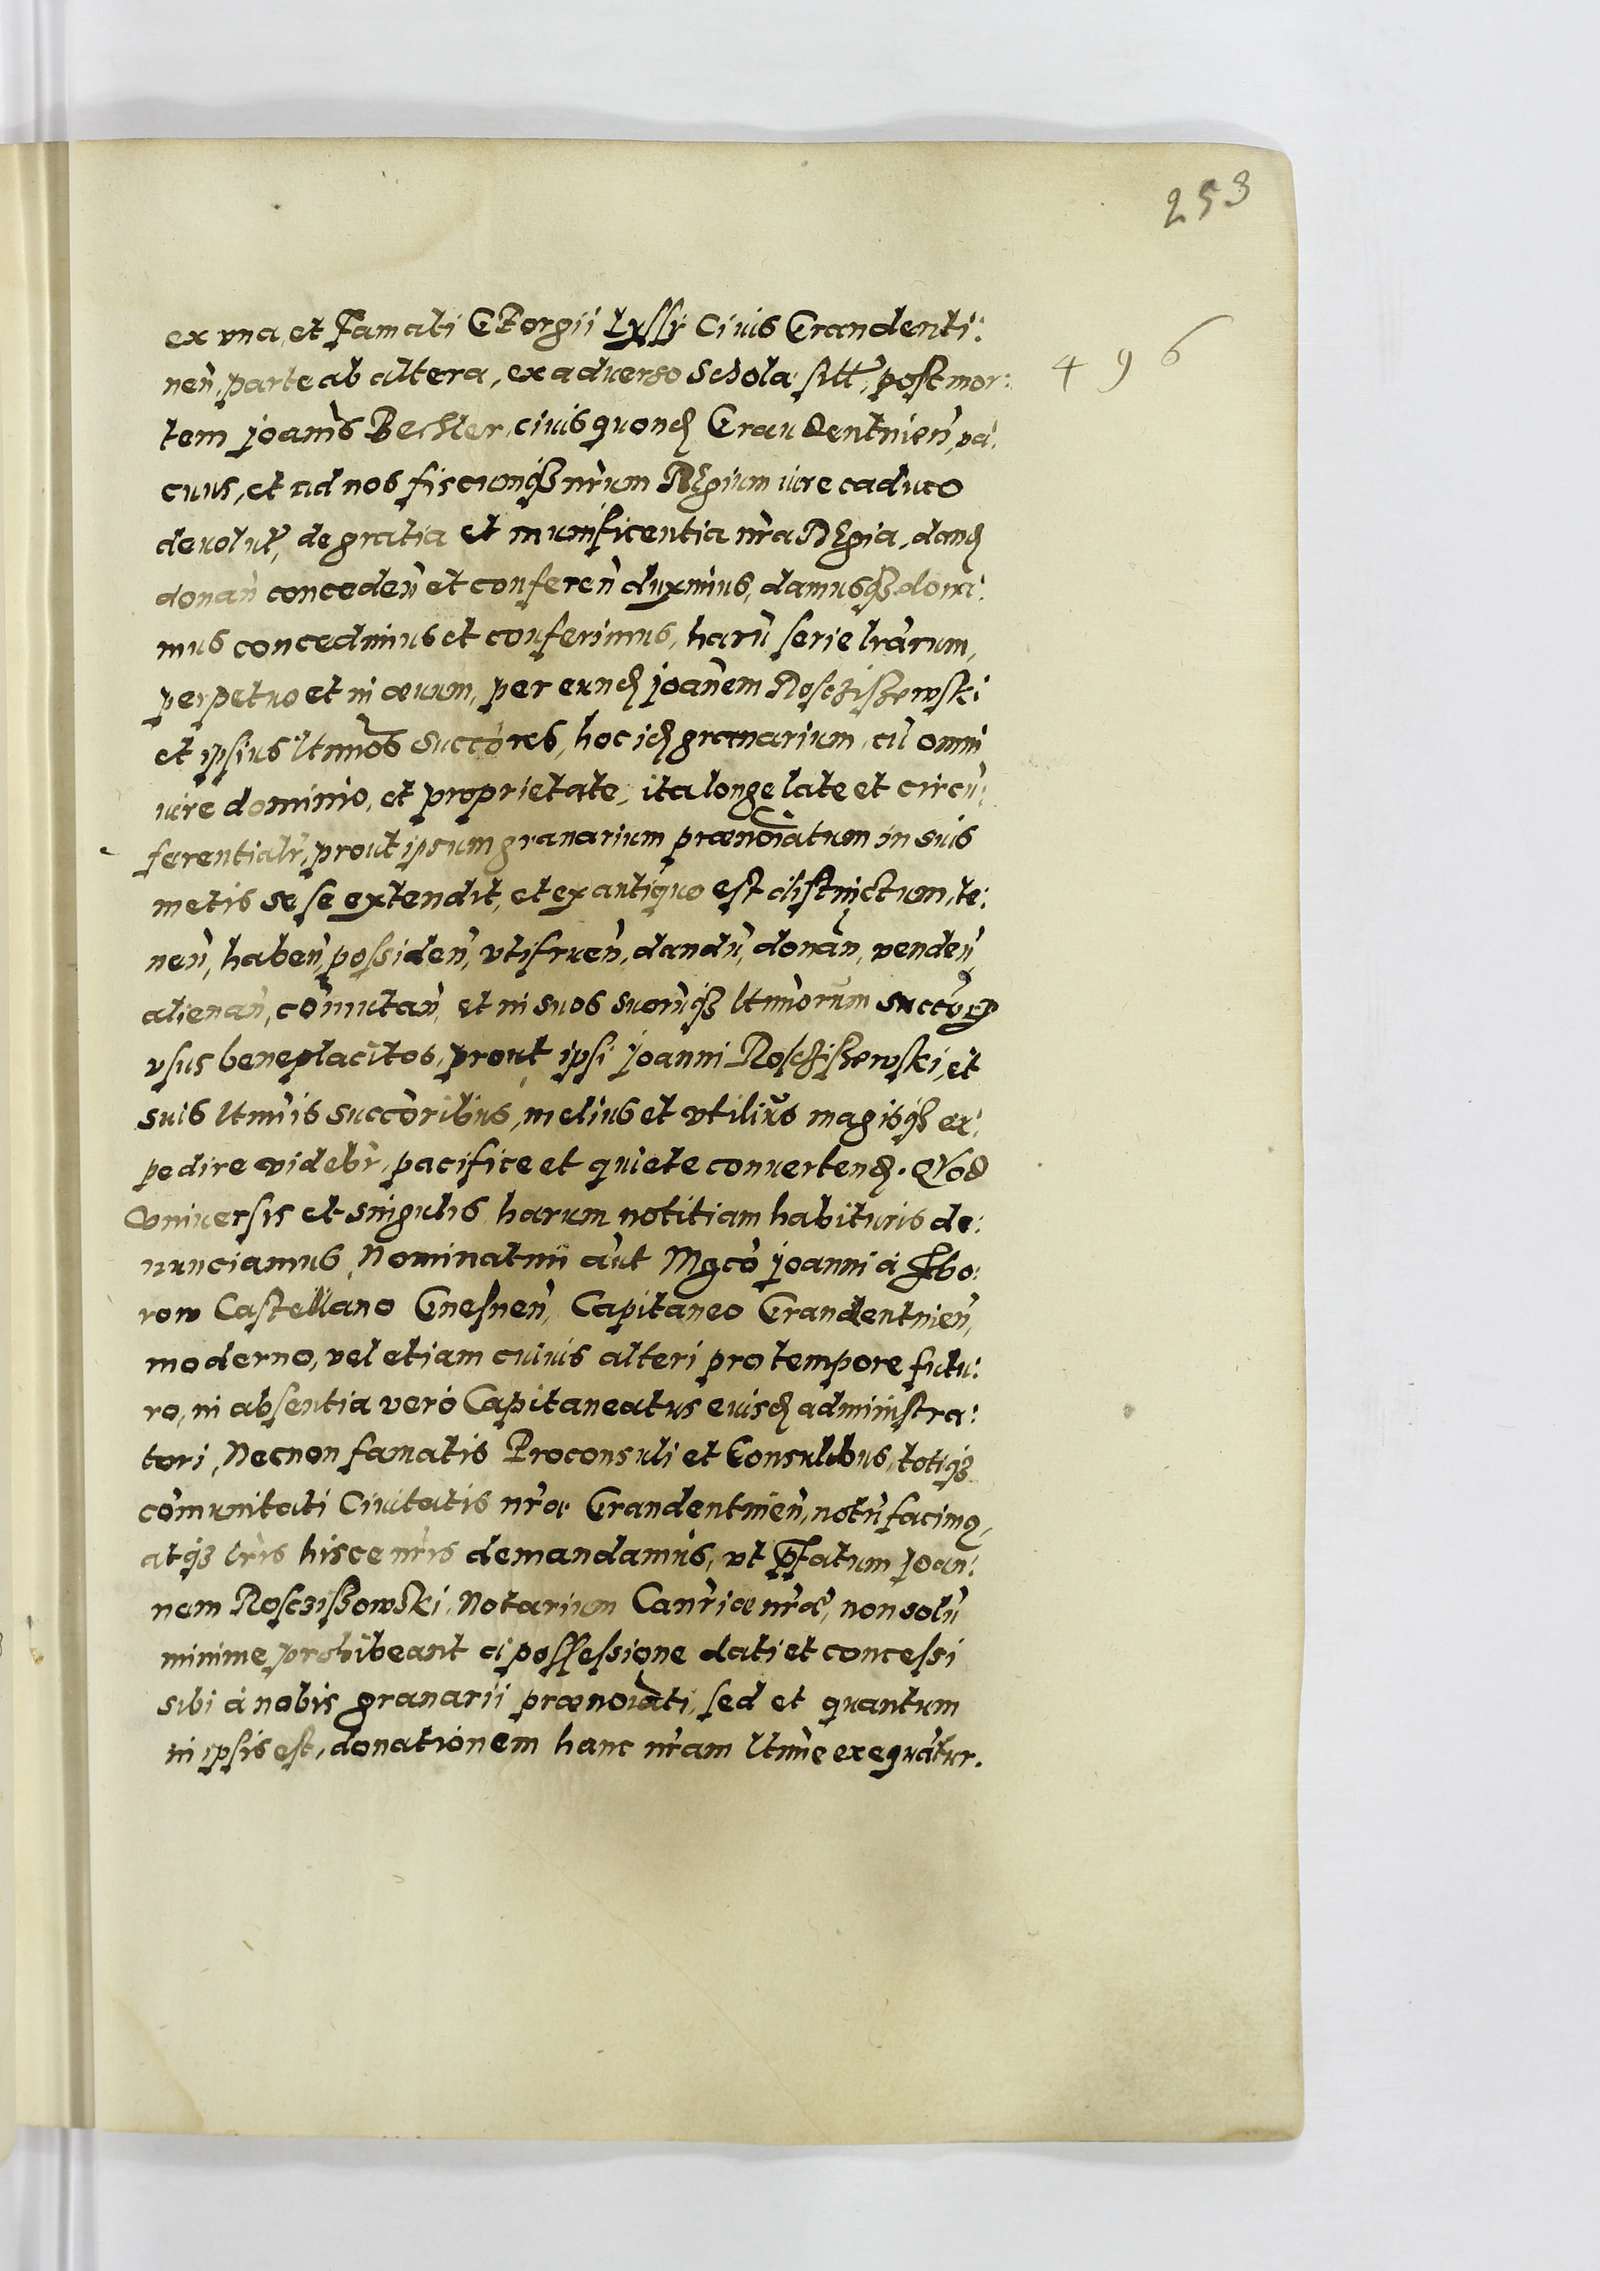 253
496
ex vna, et Famati GEorgii Lyssy Ciuis Graudenti:
nen̄, parte ab altera, ex aduerso Schola sitt̄, post mor:
tem Joan̄is Beckler, ciuis quond̄ Graudentinen̄, va:
cuus, et ad nos fiscumq̄ȝ nr̄um REgium iure caduco
deuolut̄, de gratia et munificentia nr̄a REgia, dand̄
donan̄ conceden̄ et conferen̄ duximus, damusq̄ȝ dona:
mus concedimus et conferimus, harū serie lr̄arum,
perpetuo et in æuum, per eund̄ Joan̄em Roscziszewski
et ipsius lt̄imos succōres, hoc id̄ granarium, cū omni
iure dominio, et proprietate, ita longe late et circū:
ferentialr̄, prout ipsum granarium prænoīatum in suis
metis se se extendit, et ex antiquo est distinctum, te:
nen̄, haben̄, possiden̄, vtifruen̄, dandū, donan̄, venden̄,
alienan̄, cōmutan̄, et in suos suorūq̄ȝ lt̄imorum succōrꝝ
vsus beneplacitos, prout ipsi Joanni Roscziszewski, et
suis lt̄imis succōribus, melius et vtilius magisq̄ȝ ex:
pedire videbr̄, pacifice et quiete conuertend̄. QVod
Vniuersis et singulis harum notitiam habituris de:
nunciamus, Nominatim aūt Mgco Joanni à Sbo:
row Castellano Gnesnen̄, Capitaneo Graudentinen̄,
moderno, vel etiam cuiuis alteri pro tempore futu:
ro, in absentia verò Capitaneatus eiusd̄ administra:
tori, Necnon famatis Proconsuli et Consulibus, totiq̄ȝ
cōmunitati Ciuitatis nr̄æ Graudentinen̄, notū facimꝰ,
atq̄ȝ lr̄is hisce nr̄is demandamus, vt p̄fatum Joan:
nem Roscziszowski Notarium Canr̄iæ nr̄æ, non solū
minime prohibeant à possessione dati et concessi
sibi à nobis granarii prænoīati, sed et quantum
in ipsis est, donationem hanc nr̄am lt̄ime exequātur.